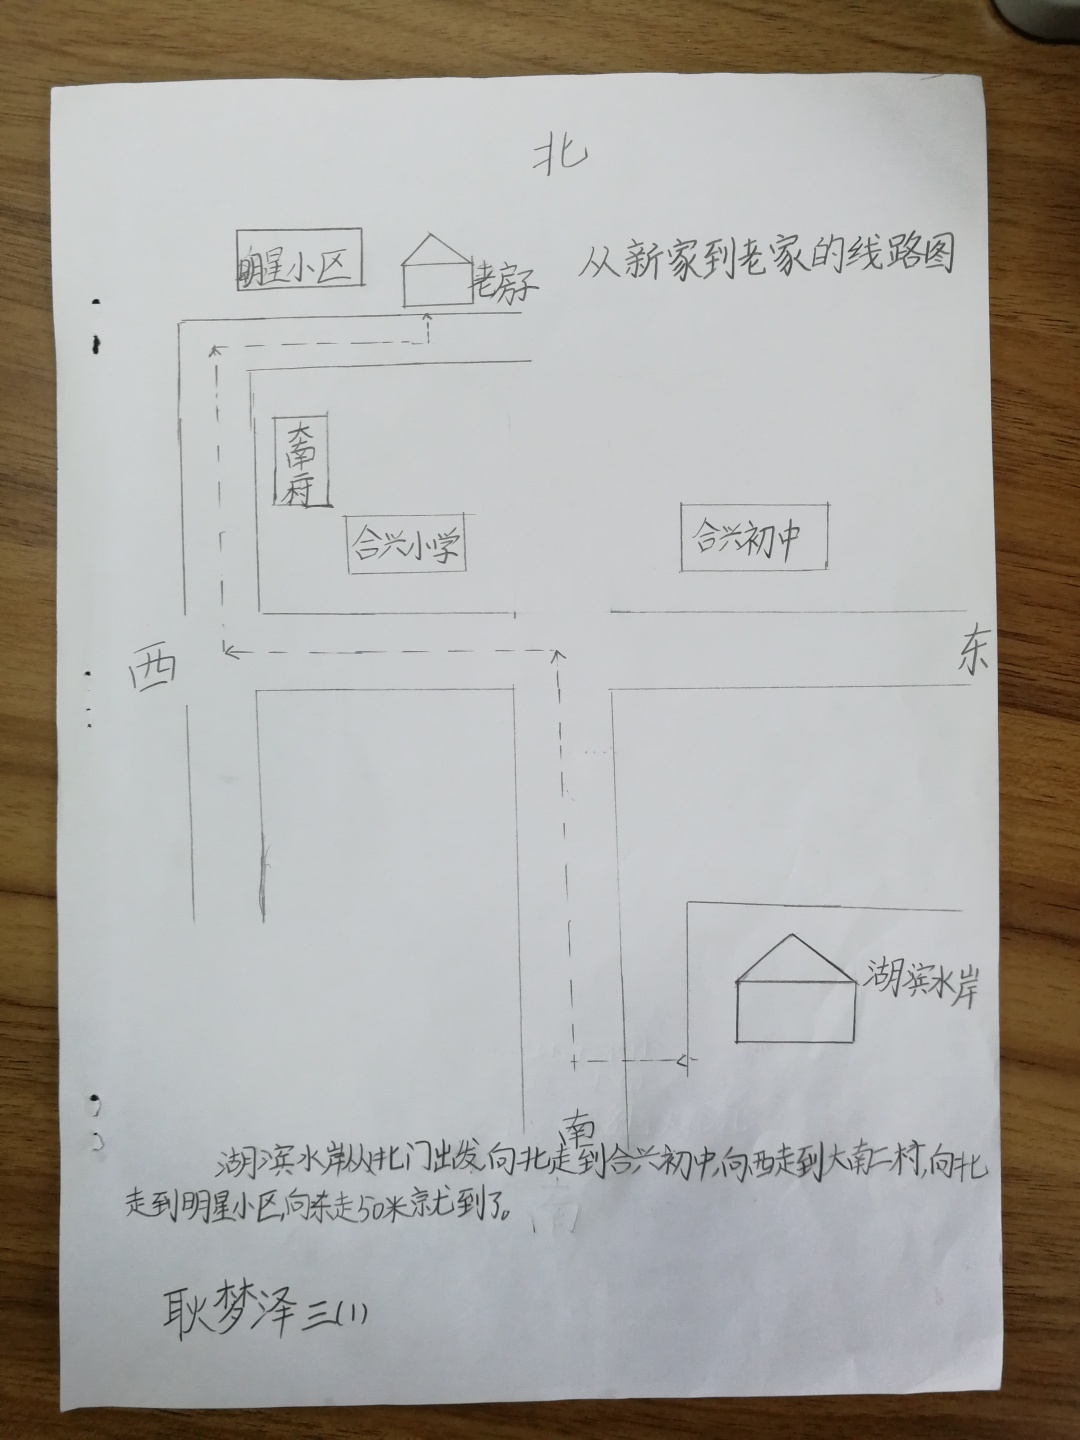 北
从新家到老家的线路图
明星小区
老房子
大南二村
合兴小学
合兴初中
西
东
湖滨水岸
南
湖滨水岸从北门出发,向北走到合兴初中,向西走到大南二村,向北
走到明星小区,向东走50米就到了。
南
耿梦泽 三(1)